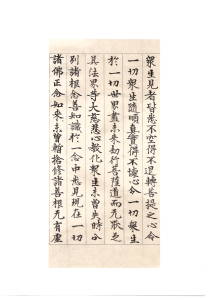 衆生見者皆悉不空得不退轉菩提之心令
一切衆生隨順真實得不壞心令一切衆生
於一切世界盡未來劫行菩薩道而无乏
具法界等大慈悲心教化衆生未曾失時分
别諸根念善知識於一念中悉見現在一切
諸佛正念如來未曾暫捨修諸善根无有虛